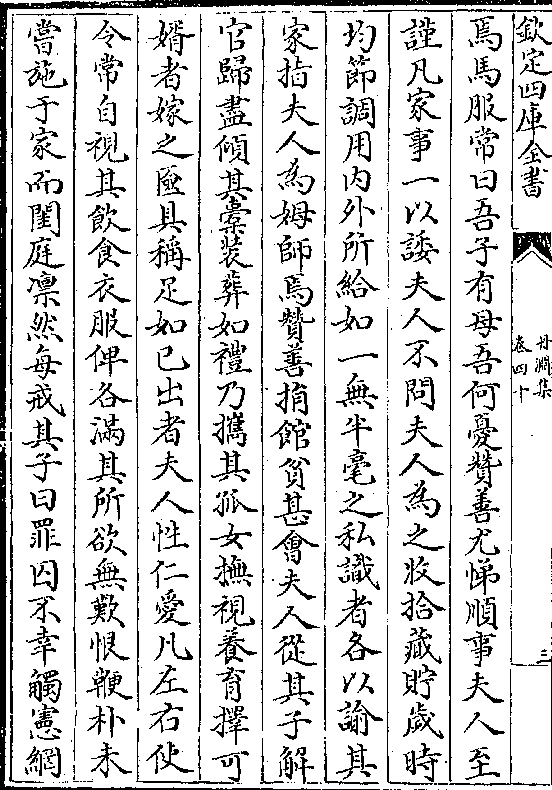 欽定四庫全書
丹淵集
卷四十
三
焉馬服常曰吾子有母吾何憂贊善尤悌順事夫人至
謹凡家事一以諉夫人不問夫人為之收拾藏貯歲時
均節調用內外所給如一無半毫之私識者各以諭其
家指夫人為姆師焉贊善捐館貧甚會夫人從其子解
官歸盡傾其橐裝葬如禮乃攜其孤女撫視養育擇可
婿者嫁之匳具稱足如已出者夫人性仁愛凡左右使
令常自視其飲食衣服俾各滿其所欲無歎恨鞭朴未
嘗施于家而閨庭凛然每戒其子曰罪囚不幸觸憲網